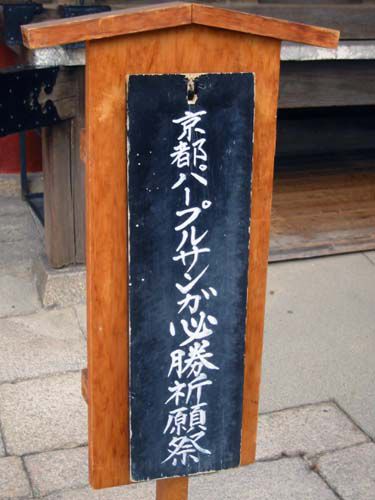 京都パープルサンガ必勝祈願祭